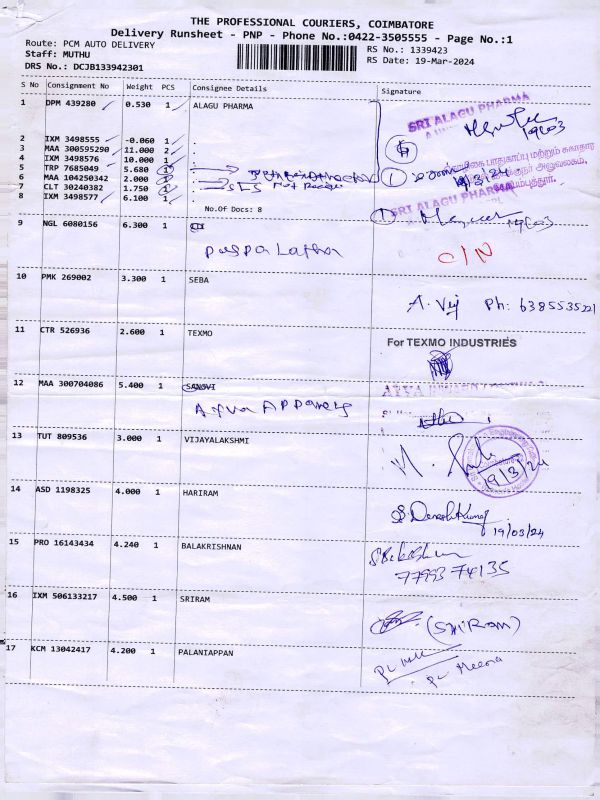 THE PROFESSIONAL COURIERS, COIMBATORE
Delivery Runsheet - PNP - Phone No.:0422-3505555 - Page No.:1
Route: PCM AUTO DELIVERY
RS No.: 1339423
Staff: MUTHU
RS Date: 19-Mar-2024
DRS No.: DCJB133942301
S No Consignment No Weight PCS Consignee Details Signature
1 DPM 439280 0.530 1 ALAGU PHARMA
SRI ALAGU PHARMA
2 IXM 3498555 -0.060 1 .
3 MAA 300595290 11.000 2 .
4 IXM 3498576 10.000 1 .
5 TRP 7685049 5.680 1 .
6 MAA 104250342 2.000 2 .
7 CLT 30240382 1.750 1 .
8 IXM 3498577 6.100 1 .
19/3/24
No.Of Docs: 8
SRI ALAGU PHARMA
9 NGL 6080156 6.300 1
PuspaLatha
C/N
10 PMK 269002 3.300 1 SEBA
A. Vij Ph: 6385535221
11 CTR 526936 2.600 1 TEXMO
For TEXMO INDUSTRIES
12 MAA 300704086 5.400 1 SANGVI
13 TUT 809536 3.000 1 VIJAYALAKSHMI
19/3/24
14 ASD 1198325 4.000 1 HARIRAM
19/03/24
15 PRO 16143434 4.240 1 BALAKRISHNAN
77993 74135
16 IXM 506133217 4.500 1 SRIRAM
(SRIRAM)
17 KCM 13042417 4.200 1 PALANIAPPAN
Meena